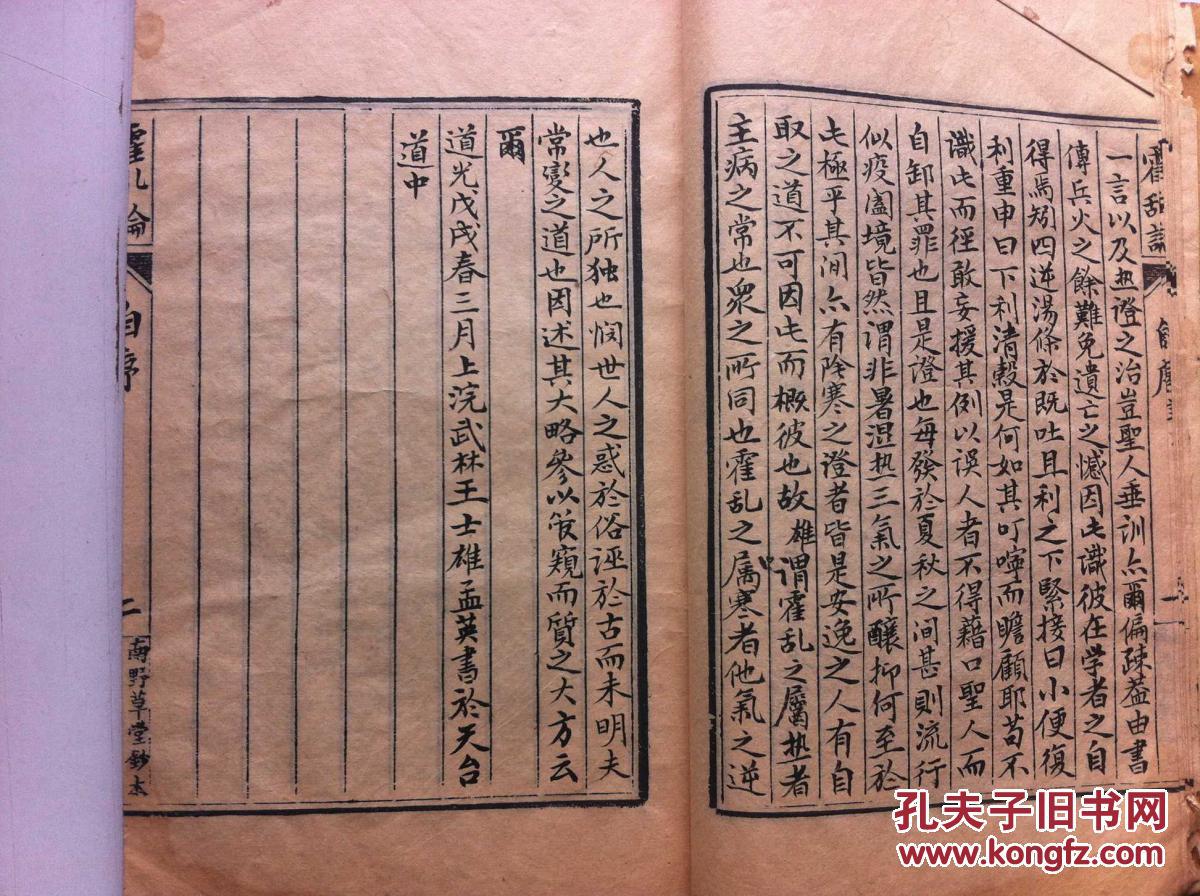 霍乱論
一言以及热證之治豈聖人垂訓尒爾偏疎葢由書
傳兵火之餘難免遺亡之憾因此識彼在学者之自
得焉矧四逆湯條於既吐且利之下緊接曰小便復
利重申曰下利清穀是何如其叮嚀而瞻顧耶苟不
識此而徑敢妄援其例以誤人者不得藉口聖人而
自卸其罪也且是證也每發於夏秋之间甚則流行
似疫闔境皆然谓非暑湿热三氣之所釀抑何至於
此極乎其间亦有陰寒之證者皆是安逸之人有自
取之道不可因此而概彼也故雄谓霍乱之属热者
主病之常也衆之所同也霍乱之属寒者他氣之逆
也人之所独也悯世人之惑於俗誣於古而未明夫
常變之道也因述其大略參以管窺而質之大方云
爾
道光戊戌春三月上浣武林王士雄孟英書於天台
道中
霍乱論
自序
二
南野草堂鈔本
孔夫子旧书网
www.kongfz.com